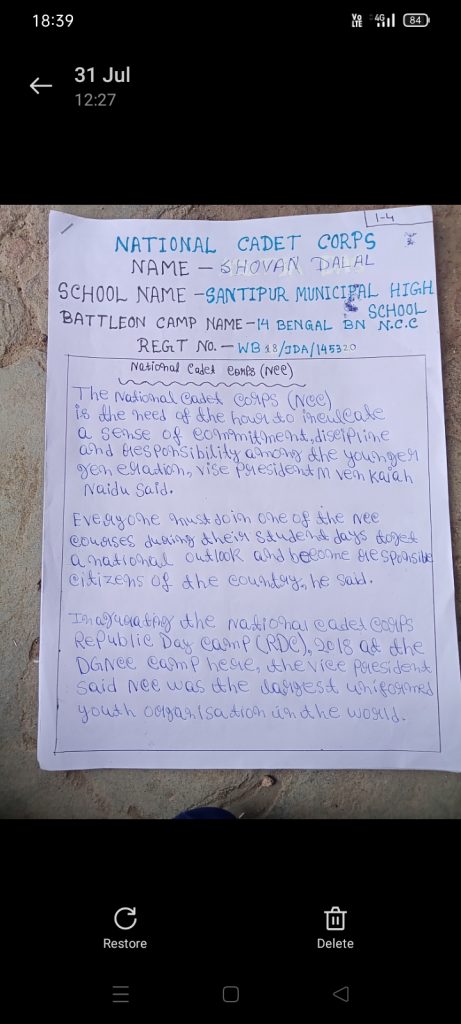 18:39
Vo LTE 4G 84
31 Jul
12:27
1-4
NATIONAL CADET CORPS
NAME - SHOVAN DALAL
SCHOOL NAME - SANTIPUR MUNICIPAL HIGH
SCHOOL
BATTLEON CAMP NAME - 14 BENGAL BN N.C.C
REGT NO. - WB18/JDA/145320
National Cadet Corps (NCC)
The National Cadet Corps (NCC)
is the need of the hour to inculcate
a sense of commitment, discipline
and responsibility among the younger
generation, vise president M Venkaiah
Naidu said.
Everyone must join one of the NCC
courses during their student days to get
a national outlook and become responsible
citizens of the country, he said.
Inagurating the National Cadet Corps
Republic Day Camp (RDC), 2018 at the
DGNCC camp here, the vice president
said NCC was the largest uniformed
youth organisation in the world.
Restore
Delete